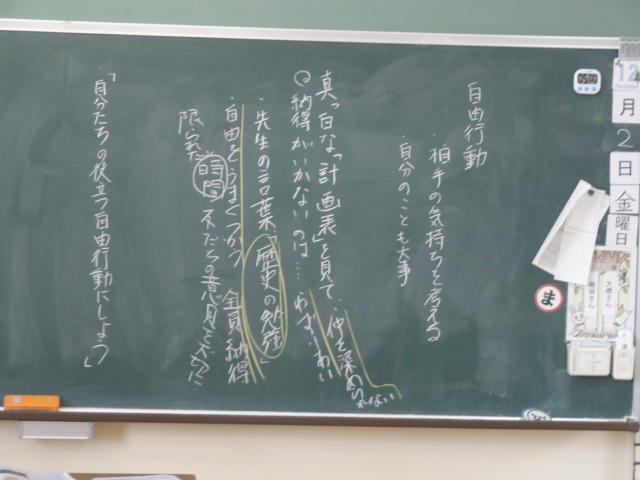 自由行動
・相手の気持ちを考える
・自分のことも大事
真っ白な「計画表」を見て、仲を深められない
納得がいかないのは…
・先生の言葉「歴史の勉強」
・自由をうまくつかう 全員納得
限られた時間
「自分たちの役立つ自由行動にしよう」
12
月
2
日
金
曜
日
ま